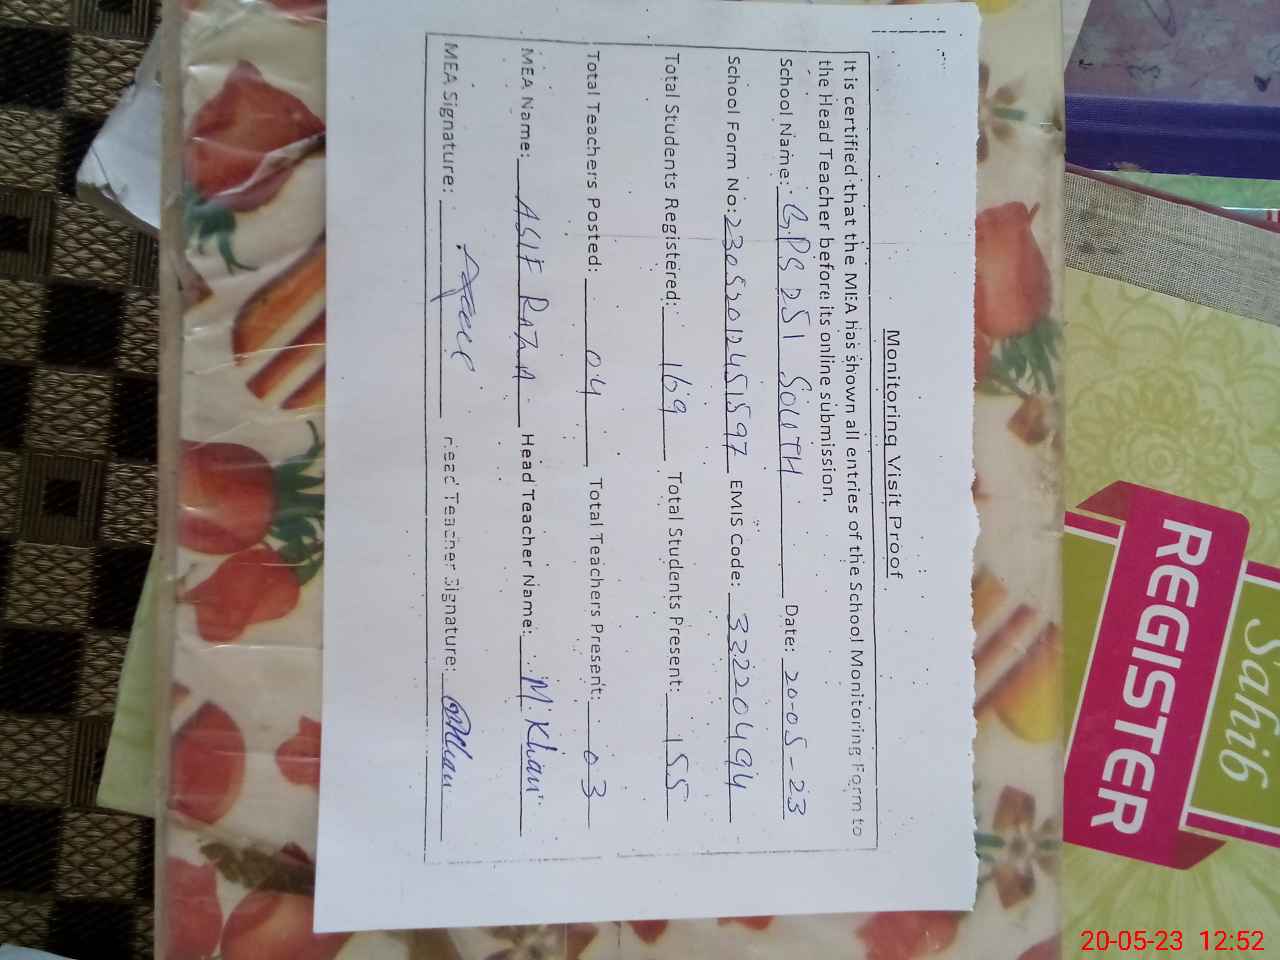 Monitoring Visit Proof
It is certified that the MEA has shown all entries of the School Monitoring Form to
the Head Teacher before its online submission.
School Name: GPS 251 SOUTH Date: 20-05-23
School Form No: 23052012451597 EMIS Code: 33220494
Total Students Registered: 169 Total Students Present: 155
Total Teachers Posted: 04 Total Teachers Present: 03
MEA Name: ASIF RAZA Head Teacher Name: M Khan
MEA Signature: Head Teacher Signature:
Sahib
REGISTER
20-05-23 12:52